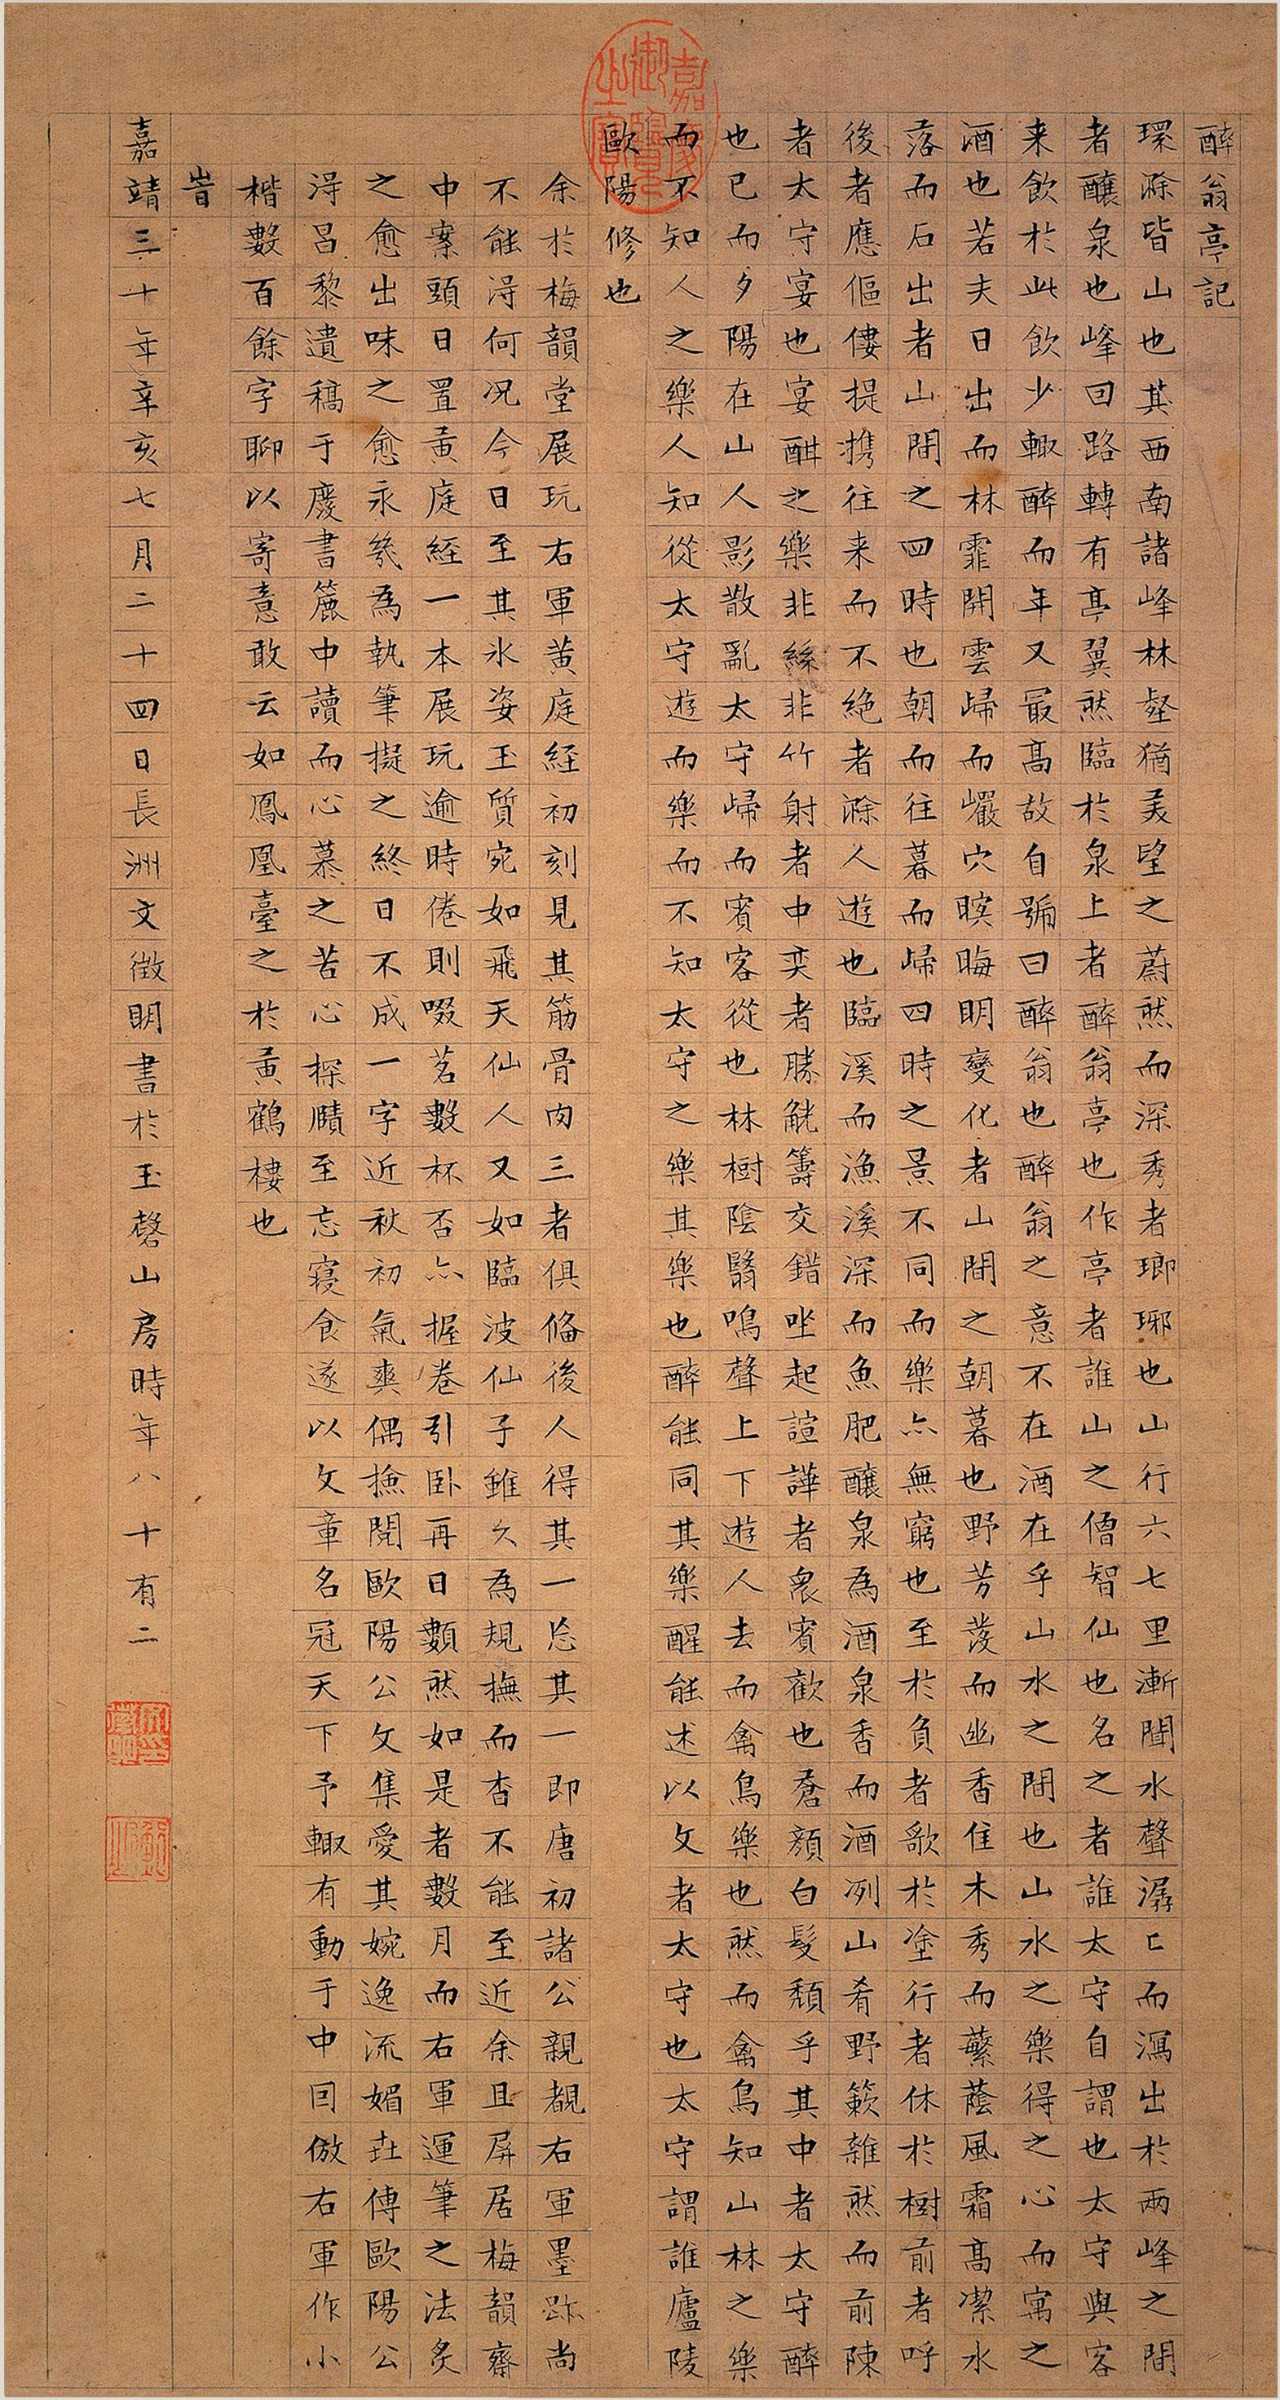 醉翁亭記
環滁皆山也其西南諸峰林壑猶美望之蔚然而深秀者瑯琊也山行六七里漸聞水聲潺〻而瀉出於兩峰之間
者釀泉也峰回路轉有亭翼然臨於泉上者醉翁亭也作亭者誰山之僧智仙也名之者誰太守自謂也太守與客
来飲於此飲少輙醉而年又最高故自號曰醉翁也醉翁之意不在酒在乎山水之間也山水之樂得之心而寓之
酒也若夫日出而林霏開雲歸而巖穴暝晦明變化者山間之朝暮也野芳發而幽香佳木秀而蘩蔭風霜高潔水
落而石出者山間之四時也朝而往暮而歸四時之景不同而樂亦無窮也至於負者歌於塗行者休於樹前者呼
後者應傴僂提攜往来而不絶者滁人遊也臨溪而漁溪深而魚肥釀泉為酒泉香而酒冽山肴野蔌雜然而前陳
者太守宴也宴酣之樂非絲非竹射者中奕者勝觥籌交錯坐起諠譁者衆賓歡也蒼顏白髮頹乎其中者太守醉
也已而夕陽在山人影散亂太守歸而賓客從也林樹陰翳鳴聲上下遊人去而禽鳥樂也然而禽鳥知山林之樂
而不知人之樂人知從太守遊而樂而不知太守之樂其樂也醉能同其樂醒能述以文者太守也太守謂誰廬陵
歐陽修也
余於梅韻堂展玩右軍黃庭経初刻見其筋骨肉三者俱俻後人得其一忘其一即唐初諸公親覩右軍墨跡尚
不能淂何况今日至其氷姿玉質宛如飛天仙人又如臨波仙子雖久為規撫而杳不能至近余且屏居梅韻齋
中案頭日置黃庭経一本展玩逾時倦則啜茗數杯否亦握卷引卧再日數然如是者數月而右軍運筆之法炙
之愈出味之愈永㡬為執筆擬之終日不成一字近秋初氣爽偶撿閱歐陽公文集愛其婉逸流媚昔傳歐陽公
淂昌黎遺稿于廢書簏中讀而心慕之苦心探賾至忘寢食遂以文章名冠天下予輙有動于中囙倣右軍作小
楷數百餘字聊以寄意敢云如鳳凰臺之於黃鶴樓也
旹
嘉靖三十年辛亥七月二十四日長洲文徵明書於玉磬山房時年八十有二
嘉慶御覽之寶